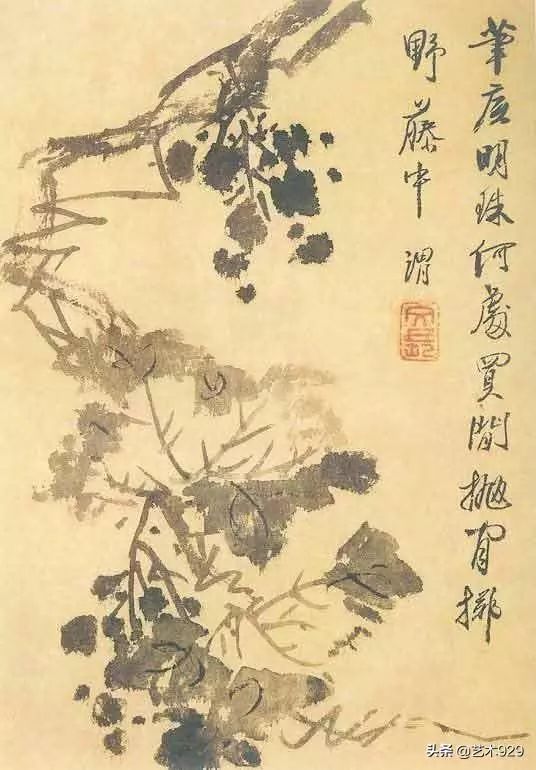 筆底明珠何處買閒抛閒擲
野藤中 渭
文長
头条 @艺术929